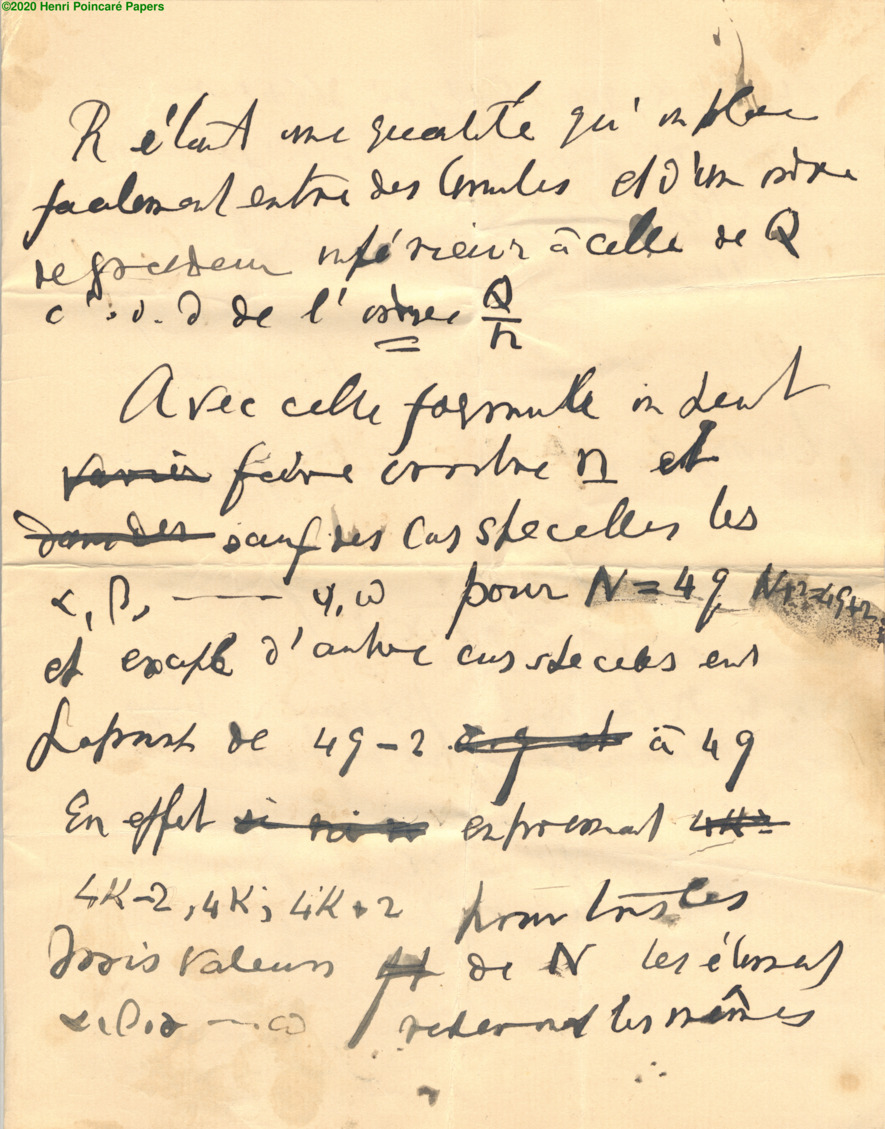 ©2020 Henri Poincaré Papers
R étant une quantité qu'on place
facilement entre des limites et d'un ordre
de grandeur inférieur à celle de Q
c. à. d de l'ordre Q/n
Avec cette formule on peut
varier faire croître n et
sauf des cas spéciaux les
α, β, —— ψ, ω pour N = 4q N+2=4q+2
et excepté d'autre cas spéciaux en
passant de 4q-2 à 4q
En effet exprimant 4K-
4K-2, 4K, 4K+2 pour tous les
trois valeurs de N les élément
α, β, —— ω redeviennent les mêmes